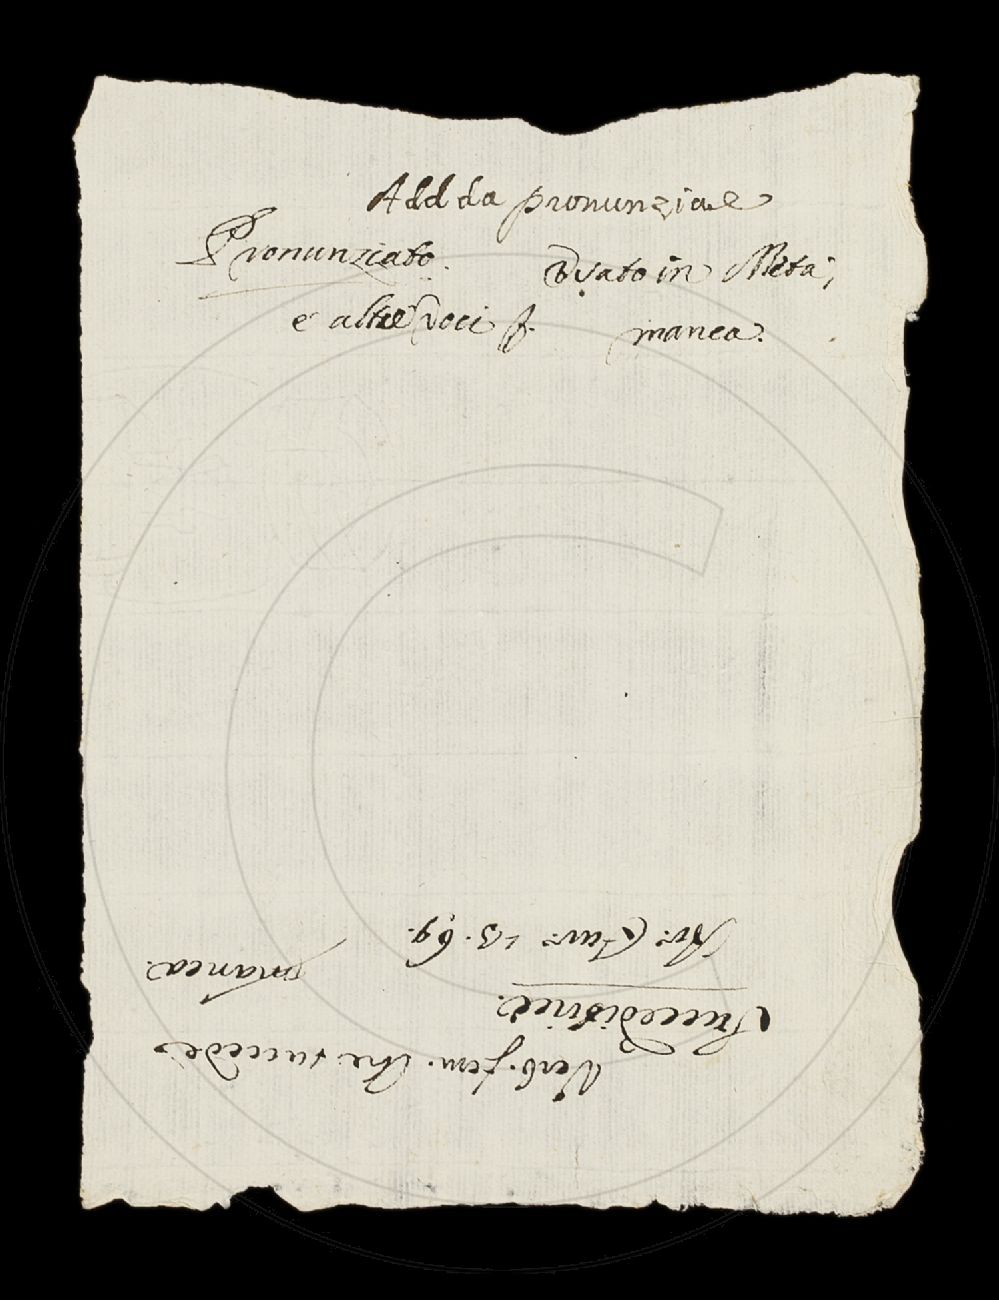 Add da pronunziare
Pronunziato. Usato in Meta,
e altre voci f. manca.
Verb. fem. Che succede
Succeditrice.
manca.
Car. 13. 69.